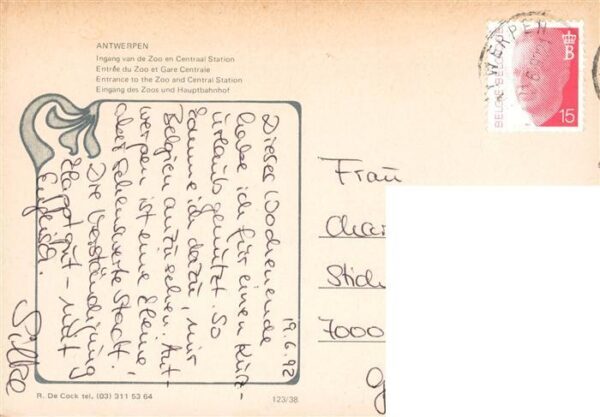 ANTWERPEN
Ingang van de Zoo en Centraal Station
Entrée du Zoo et Gare Centrale
Entrance to the Zoo and Central Station
Eingang des Zoos und Hauptbahnhof
19.6.92
Dieses Wochenende
habe ich für einen Kurz-
urlaub genutzt. So
komme ich dazu, mir
Belgien anzusehen. Ant-
werpen ist eine kleine
aber sehenswerte Stadt.
Die Verständigung
klappt gut - mit
Englisch.
Silke
R. De Cock tel. (03) 311 53 64
123/38
ANTWERPEN
BELGIE-BELGIQUE
B
15
Frau
7000